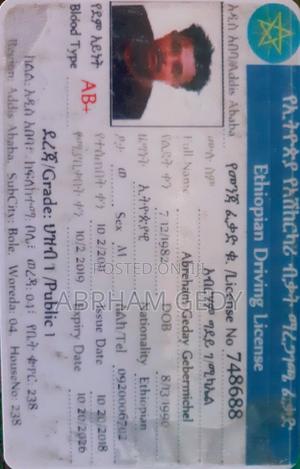 የኢትዮጵያ የአሽከርካሪ ብቃት ማረጋገጫ ፈቃድ
Ethiopian Driving License
አዲስ አበባ/Addis Ababa
የመንጃ ፈቃድ ቁ. /License No 748688
ሙሉ ስም አብርሃም ግደይ ገ/ሚካኤል
Full Name Abreham Geday Gebermichel
የልደት ቀን 7/12/1982 DOB 8/13/1990
ዜግነት ኢትዮጵያዊ Nationality Ethiopian
ፆታ ወ Sex M ስልክ/Tel 0920006702
የተሰጠበት ቀን 10/2/2011 Issue Date 10/20/2018
10/2/2019 Expiry Date 10/20/2026
የደም አይነት
Blood Type AB+
ደረጃ/Grade: ህዝብ 1 /Public 1
ክልል: አዲስ አበባ፣ ክፍለ ከተማ: ቦሌ፣ ወረዳ: 04፣ የቤት ቁጥር: 238
Region: Addis Ababa, SubCity: Bole, Woreda: 04, HouseNo: 238
POSTED ON JIJI
ABRHAM GEDY